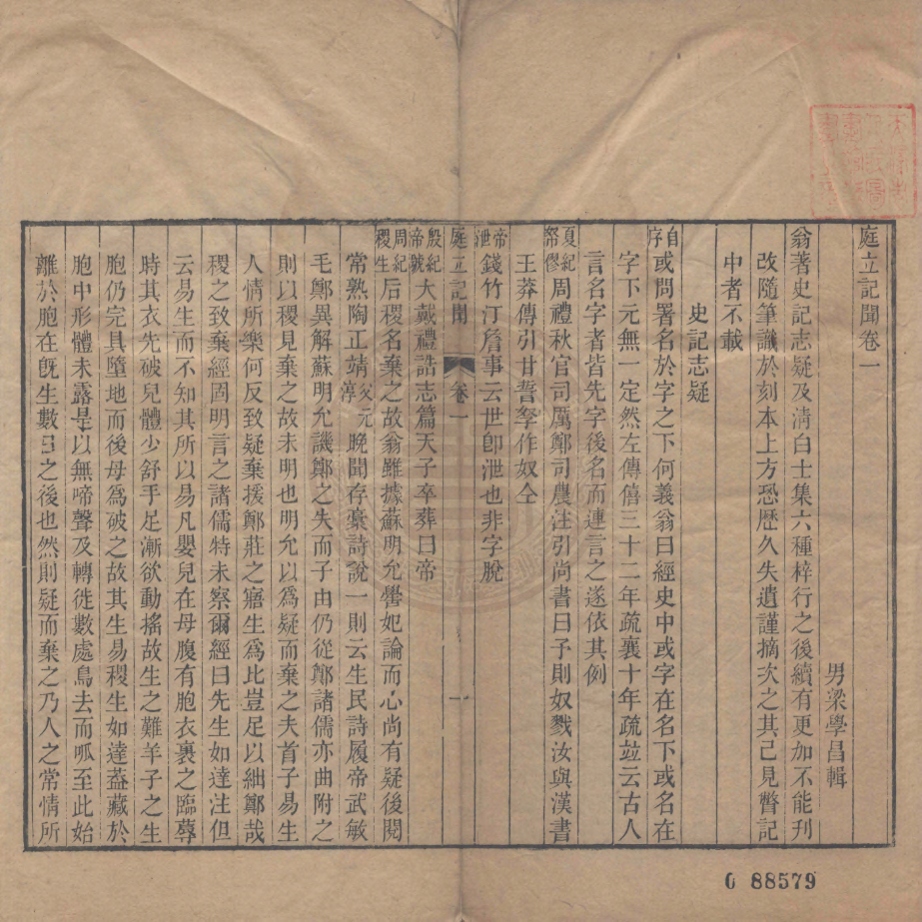 庭立記聞卷一
男梁學昌輯
翁著史記志疑及淸白士集六種梓行之後續有更加不能刋
改隨筆識於刻本上方恐歷久失遺謹摘次之其已見瞥記
中者不載
史記志疑
自序或問署名於字之下何義翁曰經史中或字在名下或名在
字下元無一定然左傳僖三十二年疏襄十年疏竝云古人
言名字者皆先字後名而連言之遂依其例
夏紀帑僇周禮秋官司厲鄭司農注引尚書曰予則奴戮汝與漢書
王莽傳引甘誓孥作奴仝
帝泄錢竹汀詹事云世卽泄也非字脫
庭立記聞
卷一
一
殷紀帝號大戴禮誥志篇天子卒葬曰帝
周紀稷生后稷名棄之故翁雖據蘇明允嚳妃論而心尚有疑後閱
常熟陶正靖晚聞存稾詩說一則云生民詩履帝武敏
毛鄭異解蘇明允譏鄭之失而子由仍從鄭諸儒亦曲附之
則以稷見棄之故未明也明允以爲疑而棄之夫首子易生
人情所樂何反致疑棄援鄭莊之寤生爲比豈足以絀鄭哉
稷之致棄經固明言之諸儒特未察爾經曰先生如達注但
云易生而不知其所以易凡嬰兒在母腹有胞衣裹之臨蓐
時其衣先破兒體少舒手足漸欲動搖故生之難羊子之生
胞仍完具墮地而後母爲破之故其生易稷生如達葢藏於
胞中形體未露是以無啼聲及轉徙數處鳥去而呱至此始
離於胞在旣生數日之後也然則疑而棄之乃人之常情所
0 88579